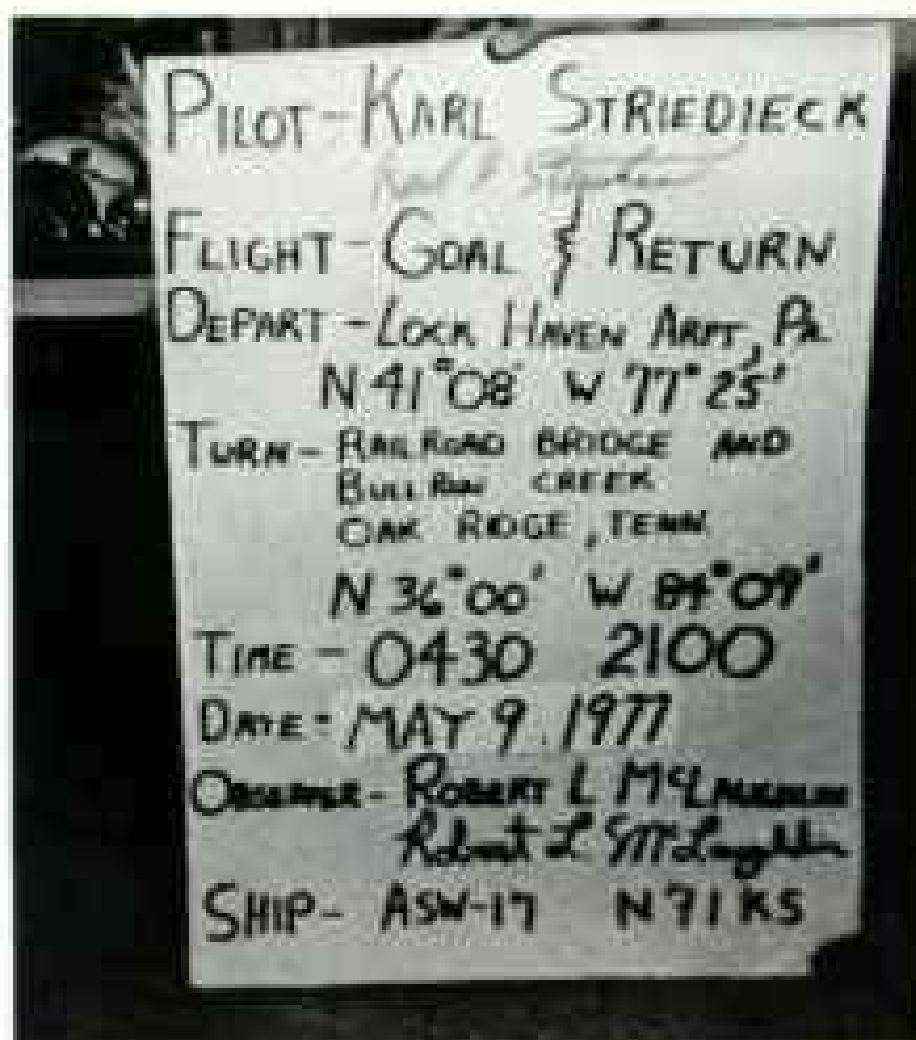 PILOT-KARL STRIEDIECK
FLIGHT-GOAL & RETURN
DEPART-LOCK HAVEN ARPT, PA
N 41°08' W 77°25'
TURN- RAILROAD BRIDGE AND
BULLRUN CREEK
OAK RIDGE, TENN
N 36°00' W 84°09'
TIME - 0430 2100
DATE- MAY 9, 1977
OBSERVER- ROBERT L McLAUGHLIN
Robert L. McLaughlin
SHIP- ASW-17 N71KS